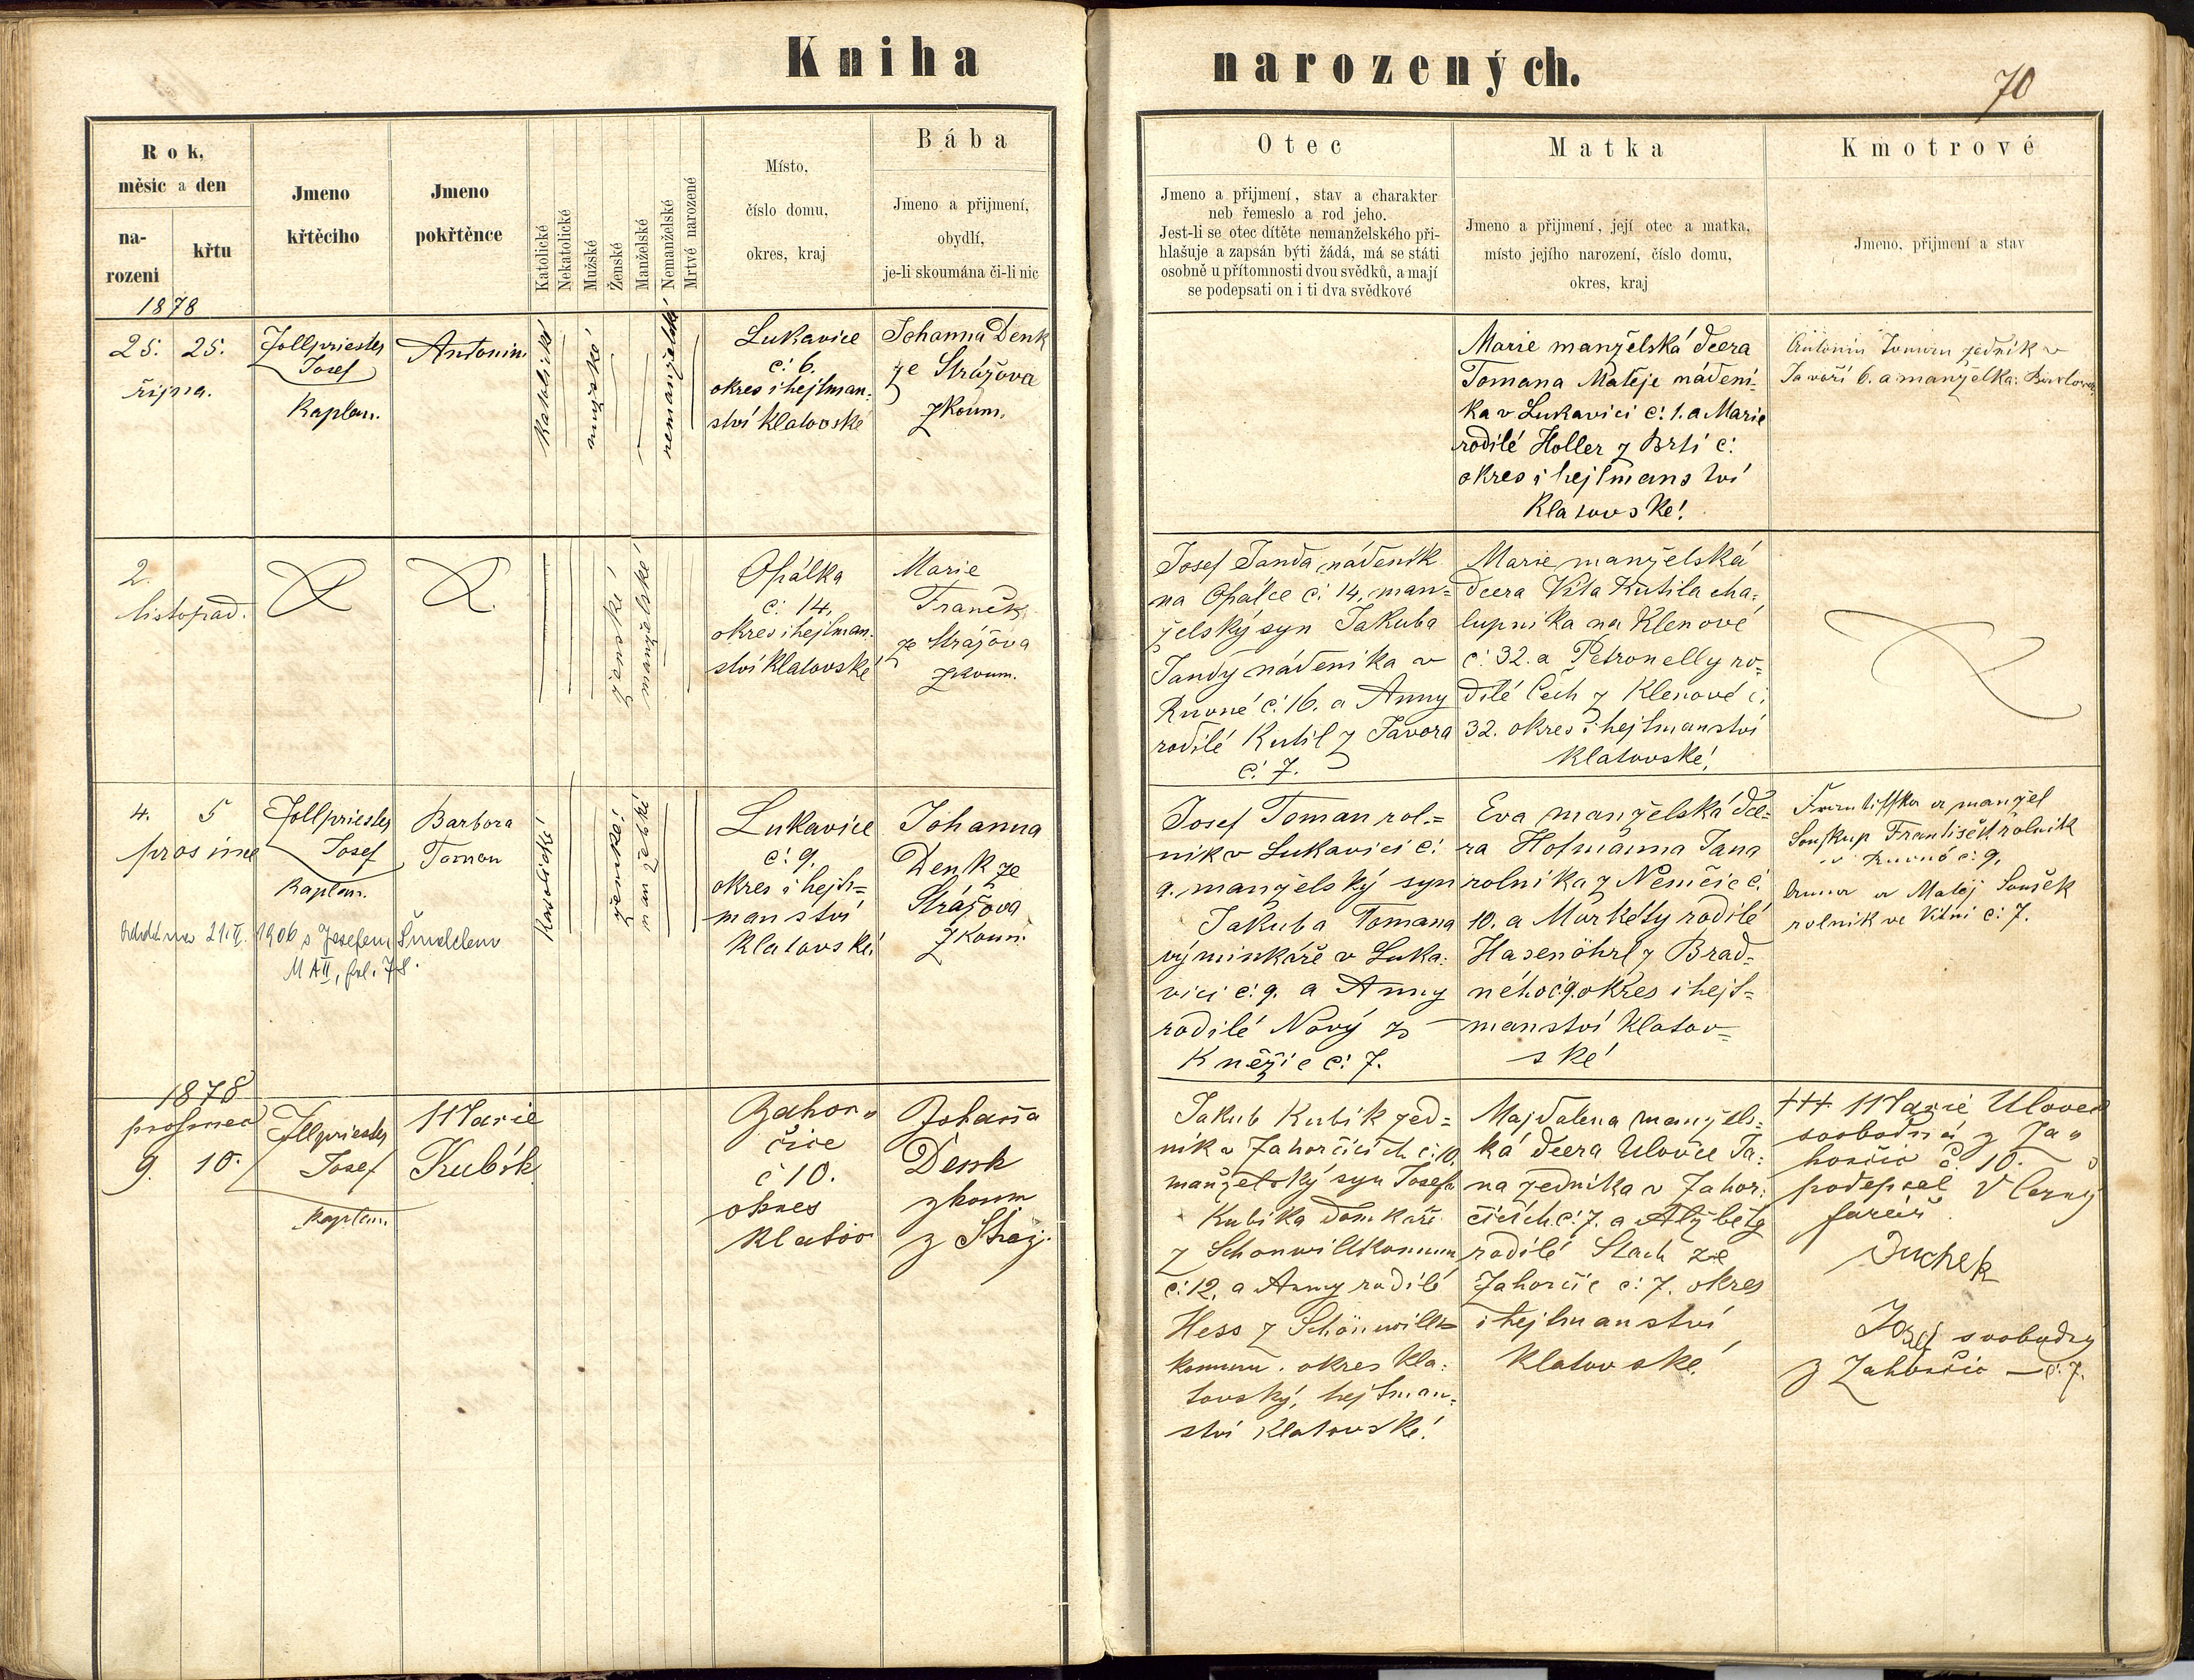 Kniha narozených.
70
Rok,
měsic a den
na-
rozeni
křtu
Jmeno
křtěciho
Jmeno
pokřtěnce
Katolické
Nekatolické
Mužské
Ženské
Manželské
Nemanželské
Mrtvé narozené
Místo,
číslo domu,
okres, kraj
Bába
Jmeno a přijmení,
obydlí,
je-li skoumána či-li nic
Otec
Jmeno a přijmení, stav a charakter
neb řemeslo a rod jeho.
Jest-li se otec dítěte nemanželského při-
hlašuje a zapsán býti žádá, má se státi
osobně u přítomnosti dvou svědků, a mají
se podepsati on i ti dva svědkové
Matka
Jmeno a přijmení, její otec a matka,
místo jejího narození, číslo domu,
okres, kraj
Kmotrové
Jmeno, přijmení a stav
1878
25. 25.
října.
Zollpriester
Josef
Kaplan.
Antonin
katolické
mužské
nemanželské
Lukavice
č: 6.
okres i hejtman-
ství Klatovské
Johanna Denk
ze Strážova
zkoum.
Marie manželská dcera
Tomana Matěje nádení-
ka v Lukavici č: 1. a Marie
rodilé Holler z Brtí č:
okres i hejtmanství
Klatovské!
Antonín Toman zedník v
6. a manželka
2.
listopad.
ženské
manželské
Opálka
č: 14,
okres i hejtman-
ství Klatovské
Marie
Franěk,
ze Strážova
zkoum.
Josef Janda nádeník
na Opálce č: 14, man-
želský syn Jakuba
Jandy nádeníka v
Rovné č: 16. a Anny
rodilé Kutil z Javora
č: 7.
Marie manželská
dcera Víta Kutila cha-
lupníka na Klenové
č: 32. a Petronelly ro-
dilé Čech z Klenové č:
32. okres i hejtmanství
Klatovské!
4. 5
prosince
Zollpriester
Josef
Kaplan.
Barbora
Toman
Oddána 21.II.1906 s Josefem
M AII, fol. 78.
katolické
ženské
manželské
Lukavice
č: 9.
okres i hejt-
manství
Klatovské.
Johanna
Denk ze
Strážova
zkoum.
Josef Toman rol-
ník v Lukavici č:
9. manželský syn
Jakuba Tomana
výminkáře v Luka-
vici č: 9. a Anny
rodilé Nový z
Kněžic č: 7.
Eva manželská dce-
ra Hofmanna Jana
rolníka z Němčic č.
10. a Markéty rodilé
Hasenöhrl z Brad-
ného č: 9. okres i hejt-
manství Klatov-
ské!
Františka a manžel
Soukup František rolník
v Rovné č: 9.
Anna a Matěj Souček
rolník ve Vítni č: 7.
1878
prosinec
9. 10.
Zollpriester
Josef
Kaplan.
Marie
Kubík
Zahor-
čice
č 10.
okres
Klatov
Johana
Denk
zkoum
z Stráž.
Jakub Kubík zed-
ník v Zahorčicích č: 10.
manželský syn Josefa
Kubíka domkáře
z Schonwillkommen
č: 12. a Anny rodilé
Hess z Schönwill-
kommen. okres Kla-
tovský, hejtman-
ství Klatovské!
Majdalena manžels-
ká dcera Ulovce Ja-
na zedníka v Zahor-
čicích č: 7. a Alžběty
rodilé Stach ze
Zahorčic č: 7. okres
i hejtmanství
Klatovské!
+++ Marie Ulovec
svobodná z Za-
horčic č. 10.
podepsal V Černý
farář
Duchek
Josef svobodný
z Zahorčic — č: 7.